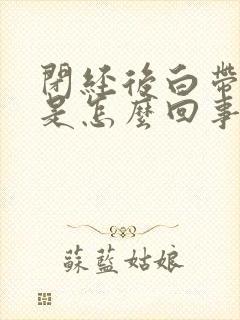 閉經後白帶
是怎麼回事
蘇藍姑娘